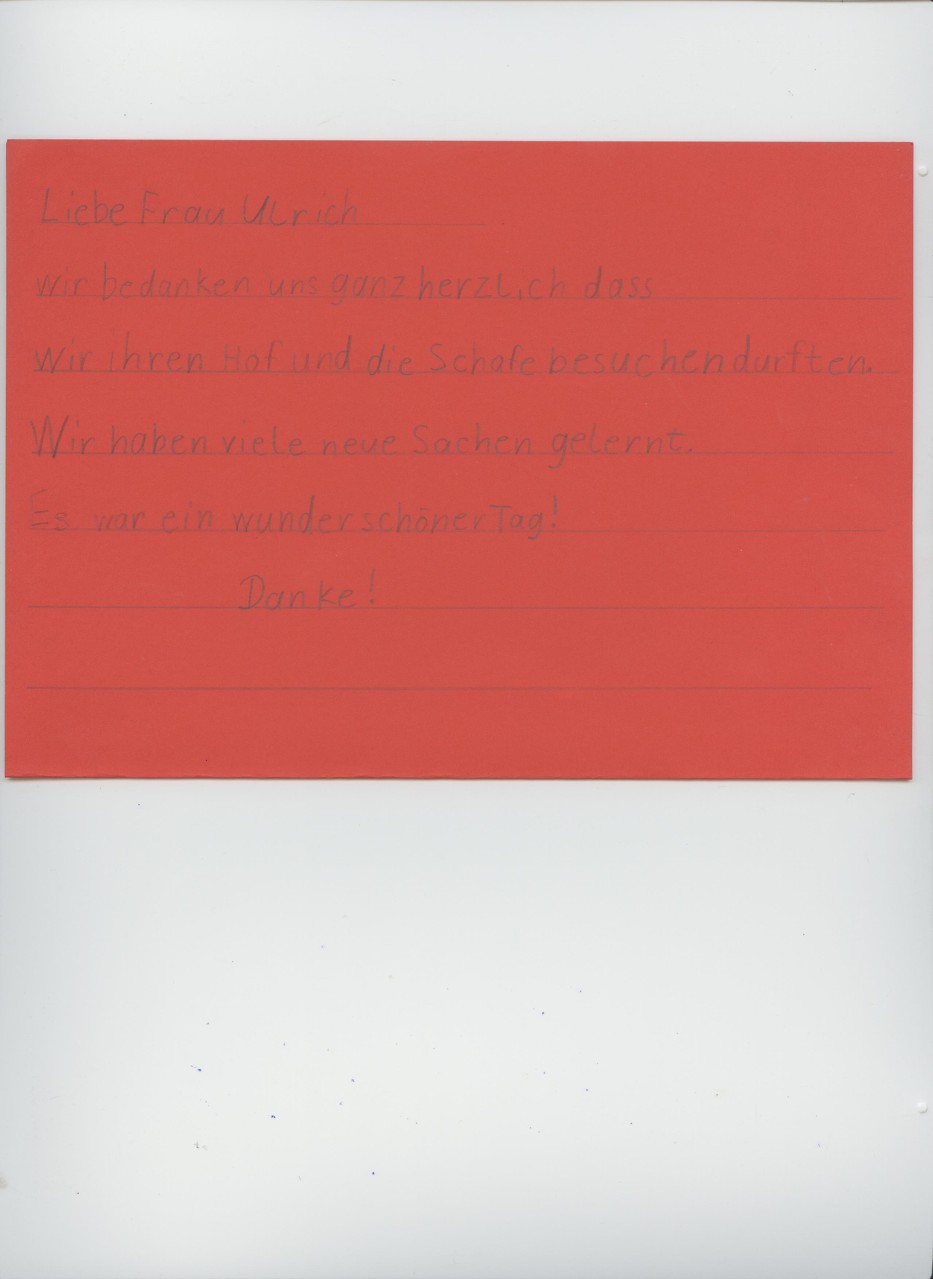 Liebe Frau Ulrich
wir bedanken uns ganz herzlich dass
wir ihren Hof und die Schafe besuchen durften.
Wir haben viele neue Sachen gelernt.
Es war ein wunderschöner Tag!
Danke!